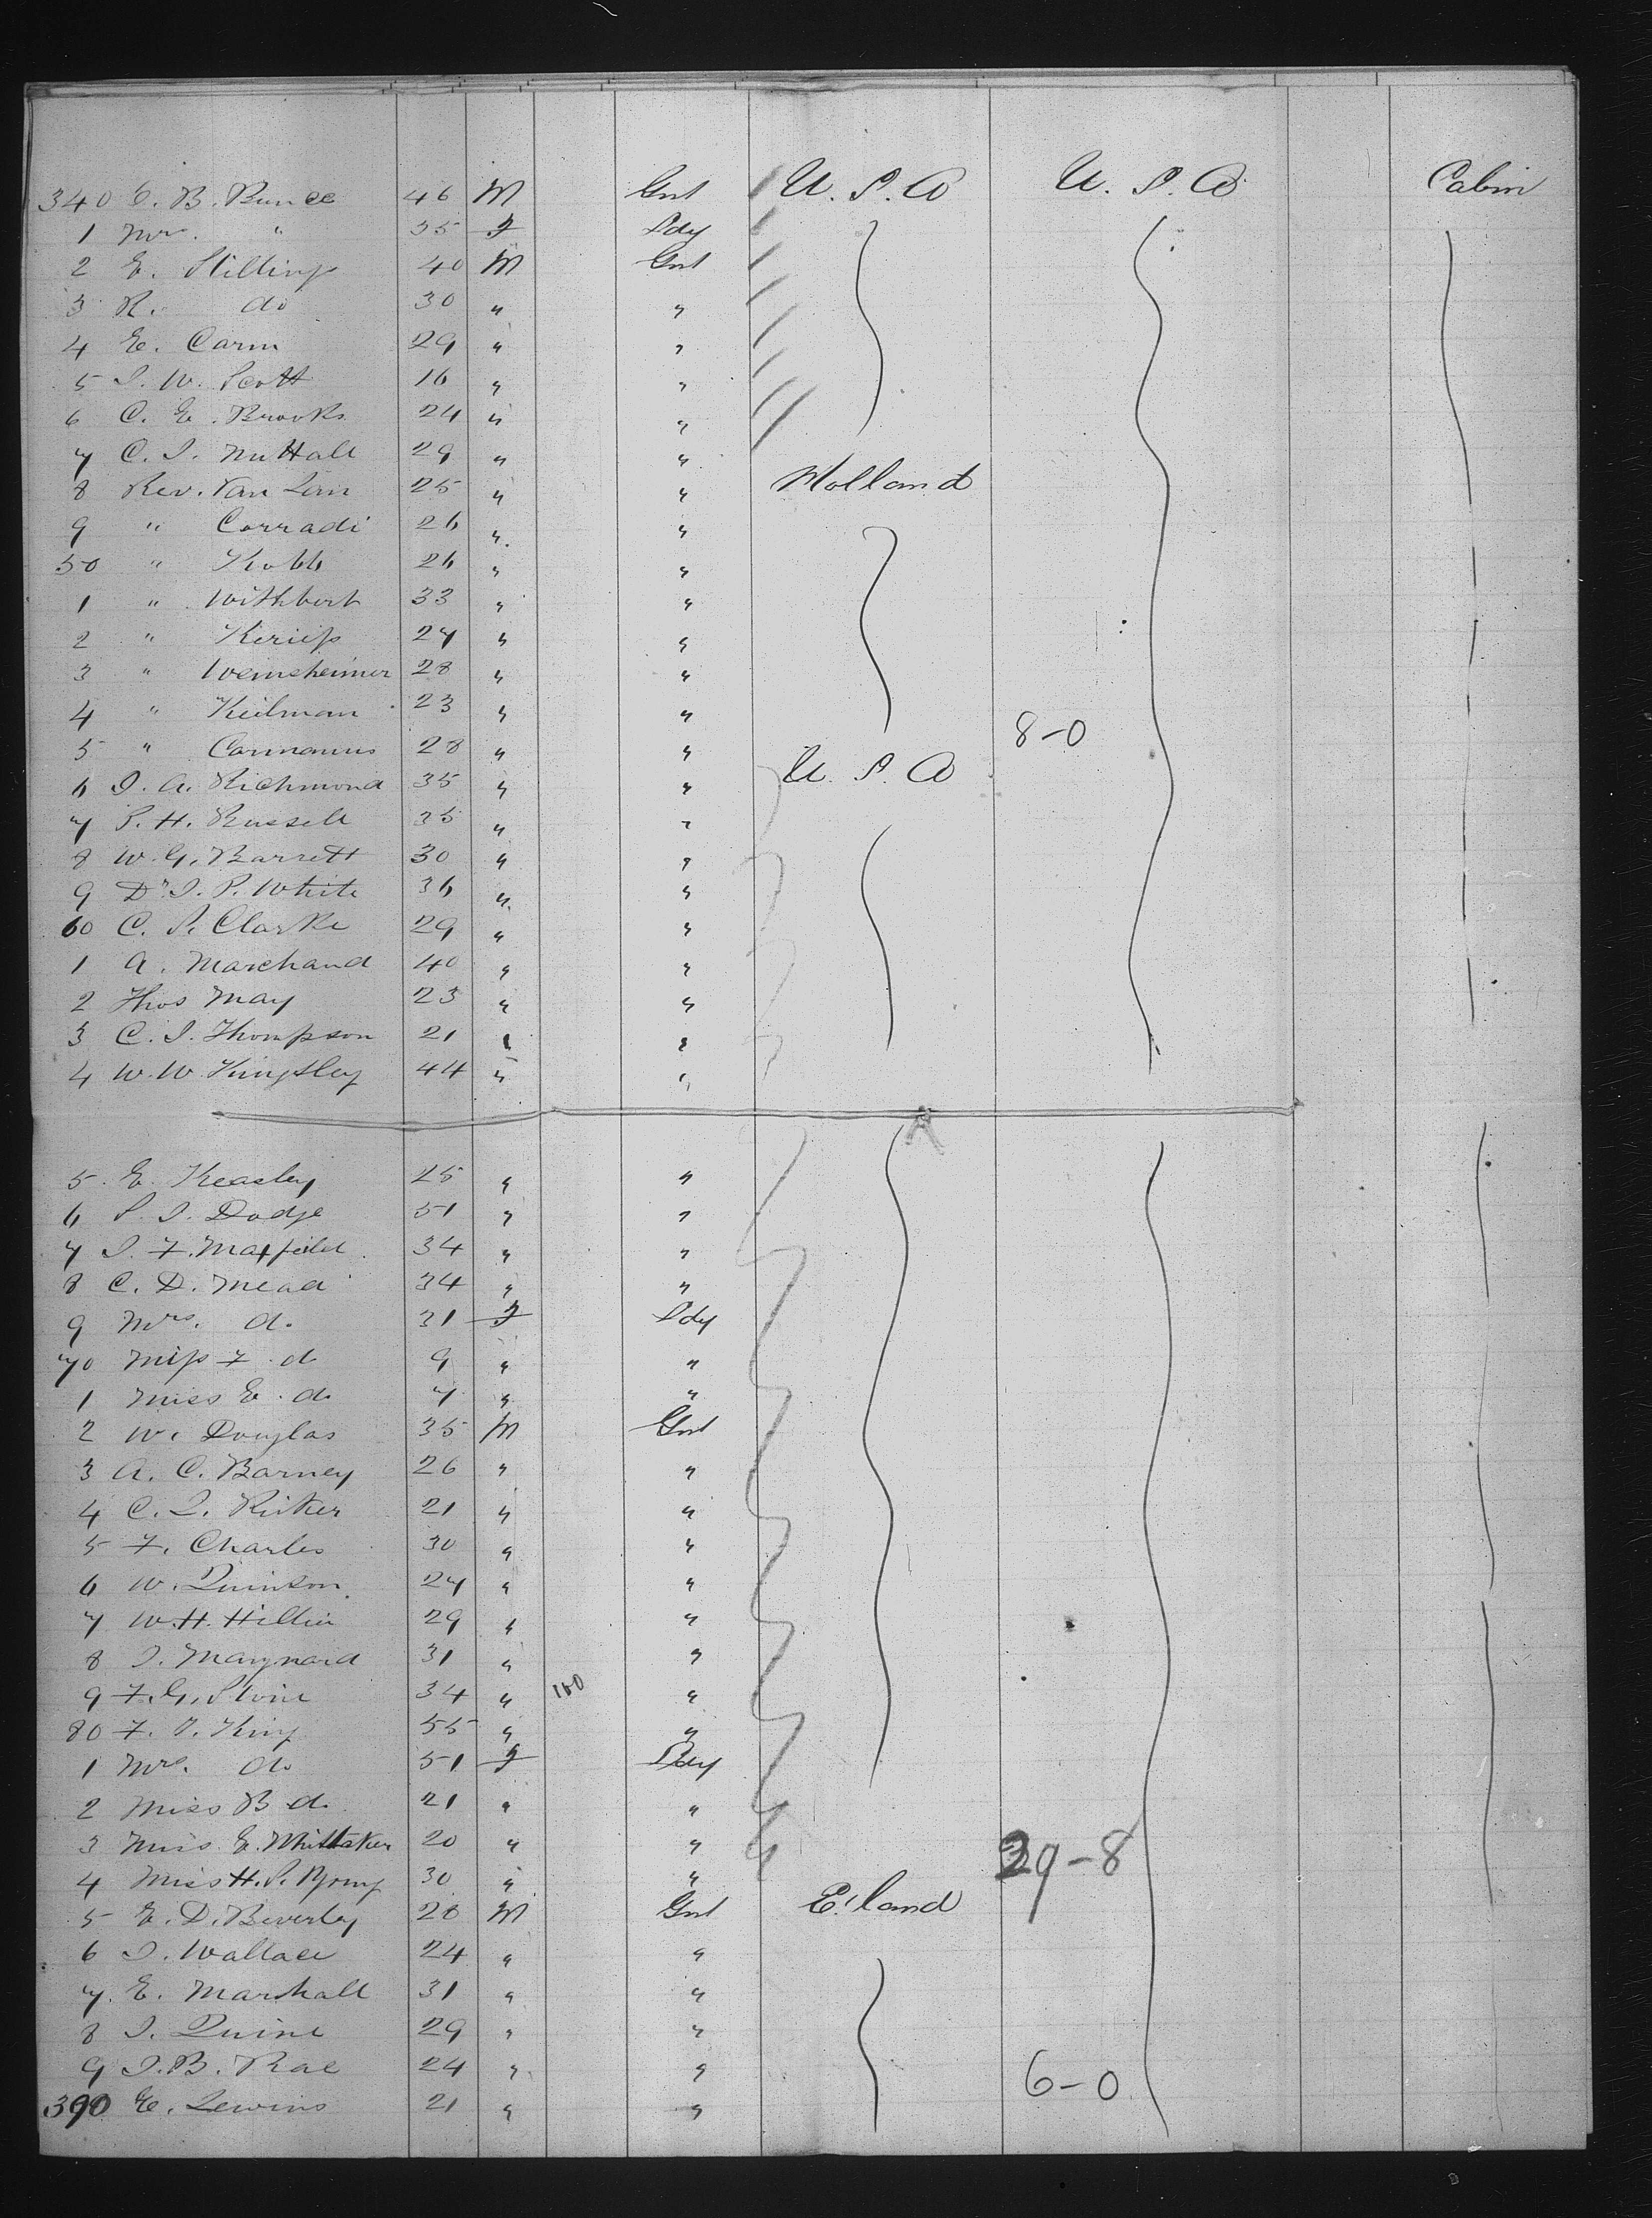 340 E. B. Bunce 46 M Gnt U. S. A U. S. A Cabin
1 Mrs. " 35 F Ldy
2 E. Stillings 40 M Gnt
3 R. do 30 " "
4 E. Carm 29 " "
5 J. W. Scott 16 " "
6 C. E. Brooks 24 " "
7 C. J. Nuttall 29 " "
8 Rev. Van Lan 25 " " Holland
9 " Corradi 26 " "
50 " Kobb 26 " "
1 " Withbert 33 " "
2 " 27 " "
3 " Weinsheimer 28 " "
4 " Keilman 23 " "
5 " 28 " " 8-0
6 J. A. Richmond 35 " " U. S. A
7 S. H. Russell 35 " "
8 W. G. Barrett 30 " "
9 Dr J. P. White 36 " "
60 C. S. Clarke 29 " "
1 A. Marchand 40 " "
2 Thos May 23 " "
3 C. J. Thompson 21 " "
4 W. W. Kingsley 44 " "
5 E. Keasley 25 " "
6 S. J. Dodge 51 " "
7 J. F. Maxfield 34 " "
8 C. D. Mead 34 " "
9 Mrs. do 31 F Ldy
70 Miss F. do 9 " "
1 Miss E. do 7 " "
2 W. Douglas 35 M Gnt
3 A. C. Barney 26 " "
4 C. L. Ricker 21 " "
5 F. Charles 30 " "
6 W. Quinson 27 " "
7 W. H. Hillier 29 " "
8 J. Maynard 31 " "
9 F. G. Stone 34 " 100 "
80 F. S. King 55 " "
1 Mrs. do 51 F Ldy
2 Miss B do 21 " "
3 Miss E. Whittaker 20 " " 29-8
4 Miss H. S. 30 " "
5 E. D. Beverley 28 M Gnt E'land
6 J. Wallace 24 " "
7 E. Marshall 31 " "
8 J. Quine 29 " "
9 J. B. Rae 24 " " 6-0
390 E. Lewins 21 " "